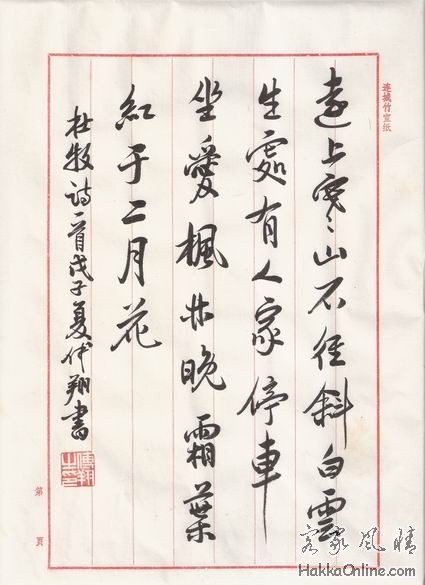 连城竹宣纸
遠上寒山石徑斜白雲
生處有人家停車
坐愛楓林晚霜葉
紅于二月花
杜牧诗一首戊子夏代翔書
第 頁
客家风情
HakkaOnline.com